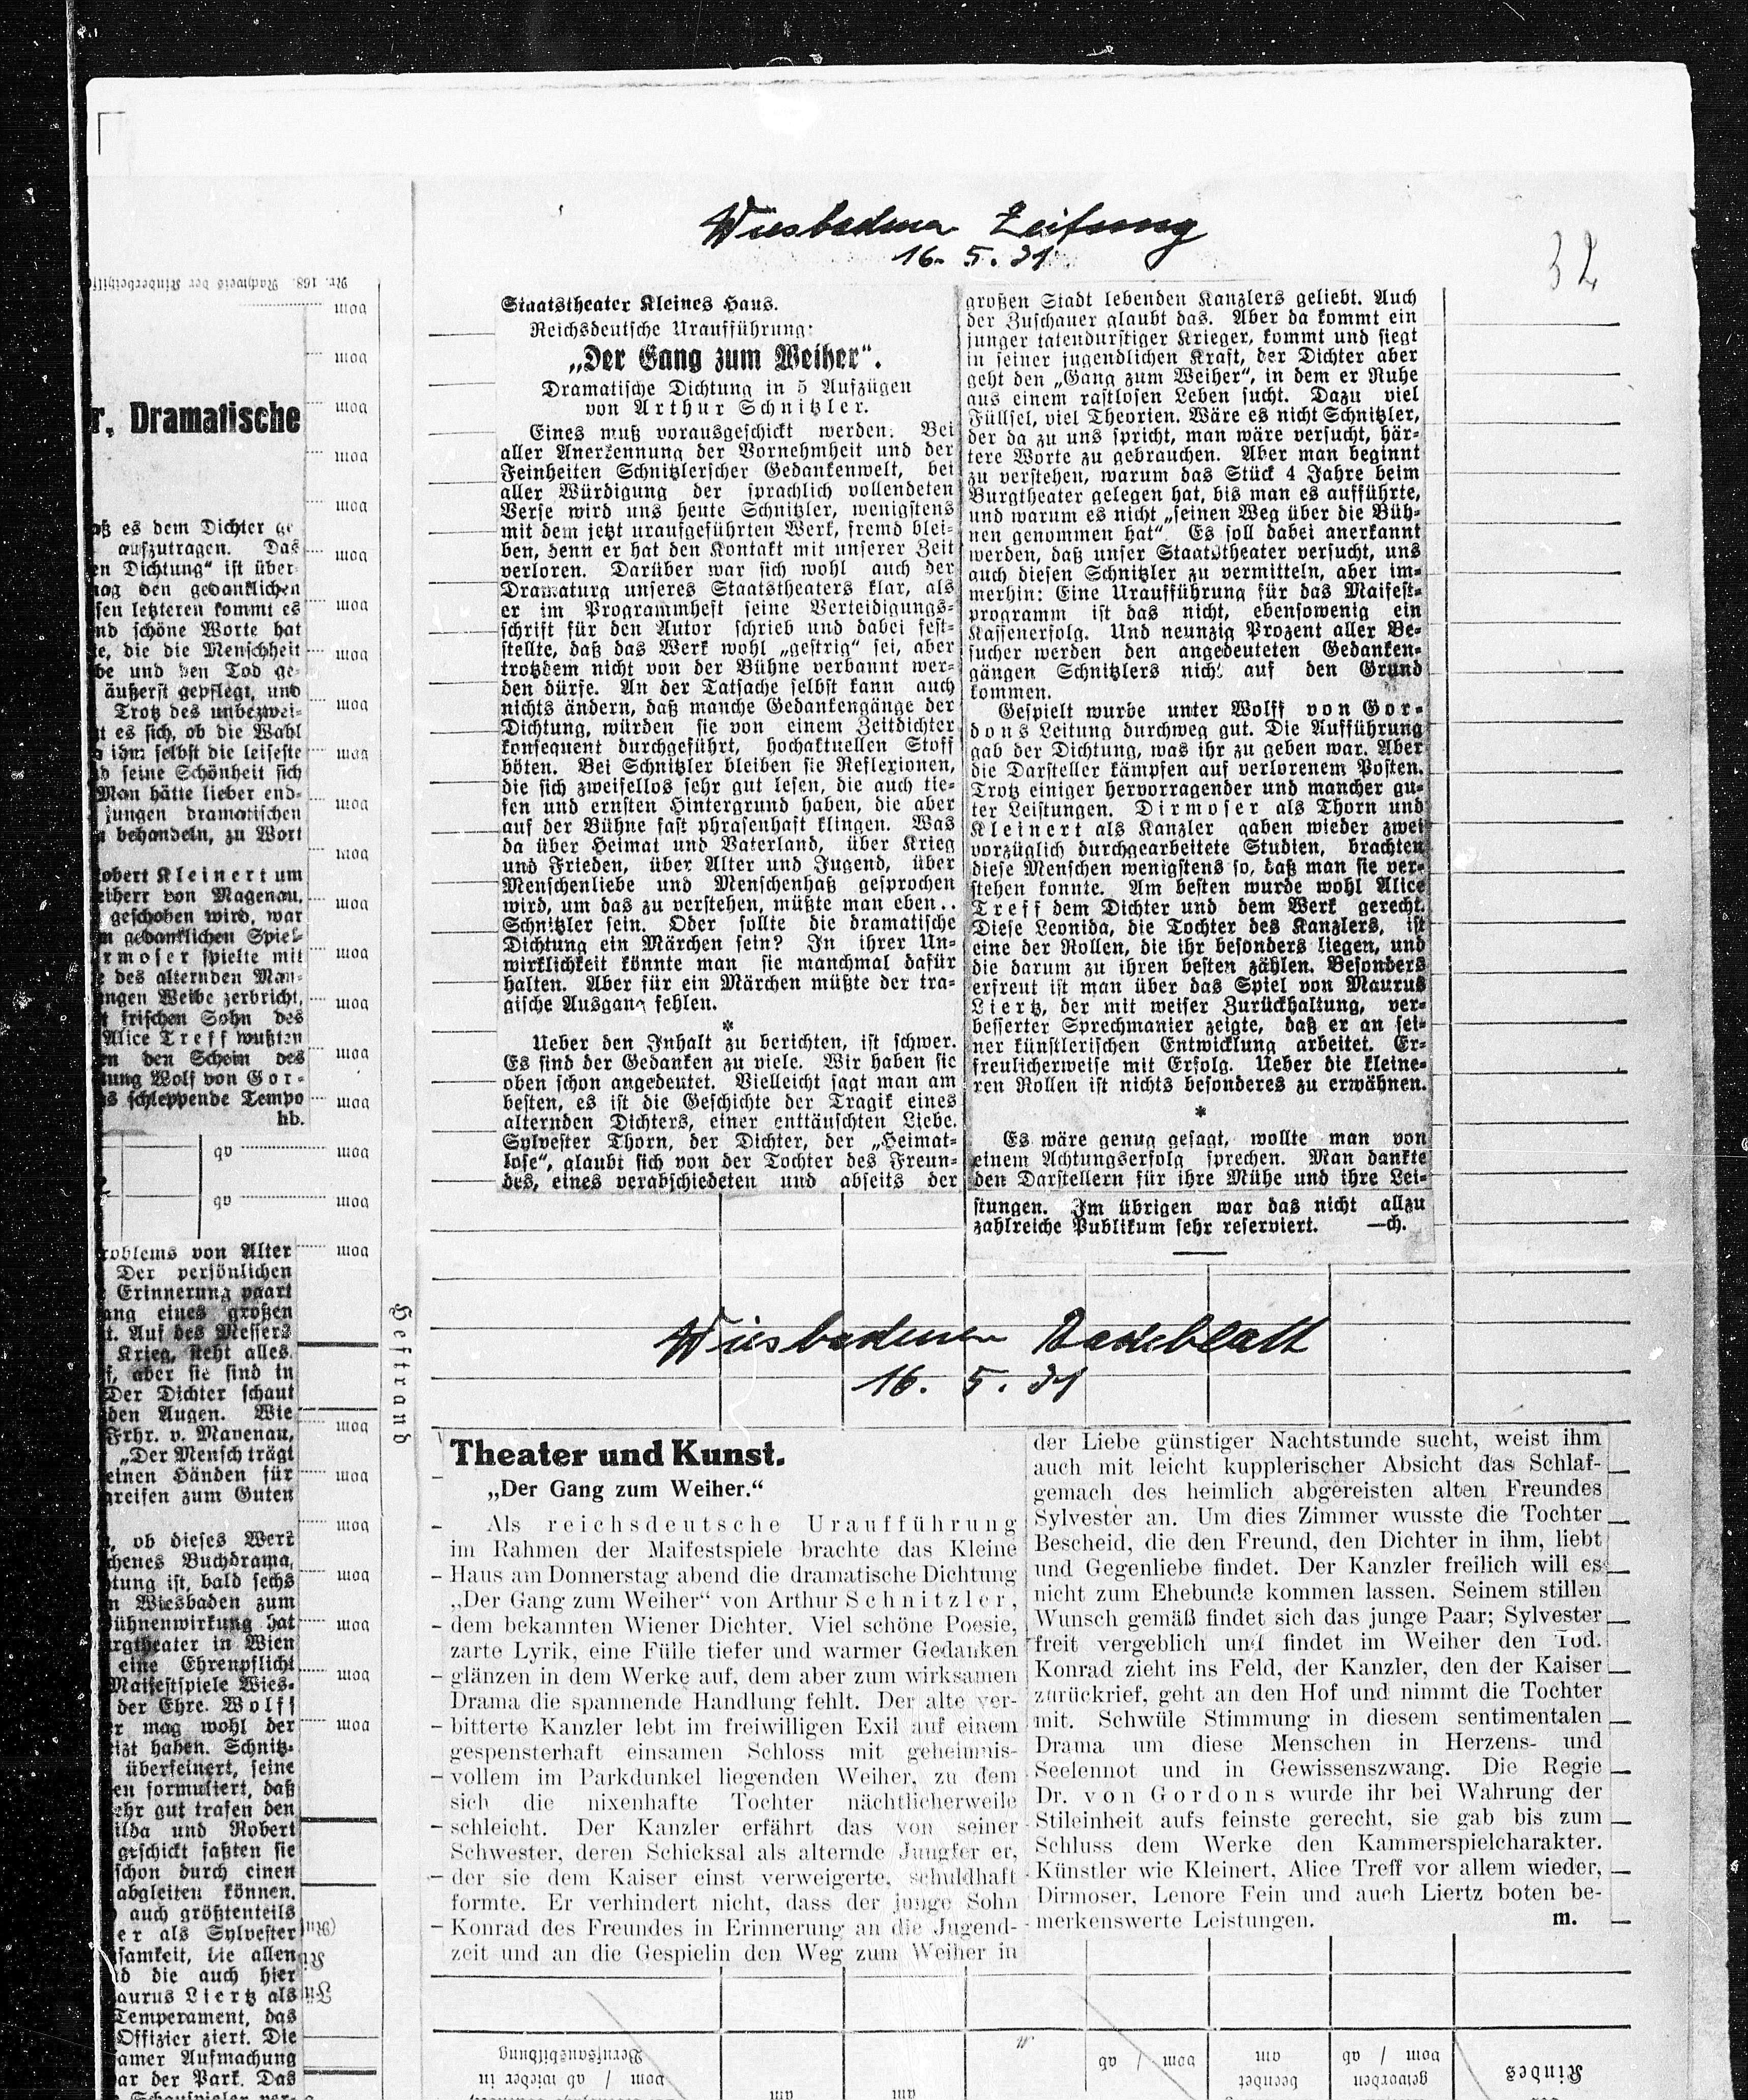 Wiesbadener Zeitung
16. 5. 31
32
Staatstheater Kleines Haus.
Reichsdeutsche Uraufführung:
„Der Gang zum Weiher“.
Dramatische Dichtung in 5 Aufzügen
von Arthur Schnitzler.
Eines muß vorausgeschickt werden. Bei
aller Anerkennung der Vornehmheit und der
Feinheiten Schnitzlerscher Gedankenwelt, bei
aller Würdigung der sprachlich vollendeten
Verse wird uns heute Schnitzler, wenigstens
mit dem jetzt uraufgeführten Werk, fremd blei-
ben, denn er hat den Kontakt mit unserer Zeit
verloren. Darüber war sich wohl auch der
Dramaturg unseres Staatstheaters klar, als
er im Programmheft seine Verteidigungs-
schrift für den Autor schrieb und dabei fest-
stellte, daß das Werk wohl „gestrig“ sei, aber
trotzdem nicht von der Bühne verbannt wer-
den dürfe. An der Tatsache selbst kann auch
nichts ändern, daß manche Gedankengänge der
Dichtung, würden sie von einem Zeitdichter
konsequent durchgeführt, hochaktuellen Stoff
böten. Bei Schnitzler bleiben sie Reflexionen,
die sich zweifellos sehr gut lesen, die auch tie-
fen und ernsten Hintergrund haben, die aber
auf der Bühne fast phrasenhaft klingen. Was
da über Heimat und Vaterland, über Krieg
und Frieden, über Alter und Jugend, über
Menschenliebe und Menschenhaß gesprochen
wird, um das zu verstehen, müßte man eben..
Schnitzler sein. Oder sollte die dramatische
Dichtung ein Märchen sein? In ihrer Un-
wirklichkeit könnte man sie manchmal dafür
halten. Aber für ein Märchen müßte der tra-
gische Ausgang fehlen.
*
Ueber den Inhalt zu berichten, ist schwer.
Es sind der Gedanken zu viele. Wir haben sie
oben schon angedeutet. Vielleicht sagt man am
besten, es ist die Geschichte der Tragik eines
alternden Dichters, einer enttäuschten Liebe.
Sylvester Thorn, der Dichter, der „Heimat-
lose“, glaubt sich von der Tochter des Freun-
des, eines verabschiedeten und abseits der
großen Stadt lebenden Kanzlers geliebt. Auch
der Zuschauer glaubt das. Aber da kommt ein
junger tatendurstiger Krieger, kommt und siegt
in seiner jugendlichen Kraft, der Dichter aber
geht den „Gang zum Weiher“, in dem er Ruhe
aus einem rastlosen Leben sucht. Dazu viel
Füllsel, viel Theorien. Wäre es nicht Schnitzler,
der da zu uns spricht, man wäre versucht, här-
tere Worte zu gebrauchen. Aber man beginnt
zu verstehen, warum das Stück 4 Jahre beim
Burgtheater gelegen hat, bis man es aufführte,
und warum es nicht „seinen Weg über die Büh-
nen genommen hat“ Es soll dabei anerkannt
werden, daß unser Staatstheater versucht, uns
auch diesen Schnitzler zu vermitteln, aber im-
merhin: Eine Uraufführung für das Maifest-
programm ist das nicht, ebensowenig ein
Kassenerfolg. Und neunzig Prozent aller Be-
sucher werden den angedeuteten Gedanken-
gängen Schnitzlers nicht auf den Grund
kommen.
Gespielt wurde unter Wolff von Gor-
dons Leitung durchweg gut. Die Aufführung
gab der Dichtung, was ihr zu geben war. Aber
die Darsteller kämpfen auf verlorenem Posten.
Trotz einiger hervorragender und mancher gu-
ter Leistungen. Dirmoser als Thorn und
Kleinert als Kanzler gaben wieder zwei
vorzüglich durchgearbeitete Studien, brachten
diese Menschen wenigstens so, daß man sie ver-
stehen konnte. Am besten wurde wohl Alice
Treff dem Dichter und dem Werk gerecht.
Diese Leonida, die Tochter des Kanzlers, ist
eine der Rollen, die ihr besonders liegen, und
die darum zu ihren besten zählen. Besonders
erfreut ist man über das Spiel von Maurus
Liertz, der mit weiser Zurückhaltung, ver-
besserter Sprechmanier zeigte, daß er an sei-
ner künstlerischen Entwicklung arbeitet. Er-
freulicherweise mit Erfolg. Ueber die kleine-
ren Rollen ist nichts besonderes zu erwähnen.
*
Es wäre genug gesagt, wollte man von
einem Achtungserfolg sprechen. Man dankte
den Darstellern für ihre Mühe und ihre Lei-
stungen. Im übrigen war das nicht allzu
zahlreiche Publikum sehr reserviert. —ch.
Wiesbadener Badeblatt
16. 5. 31
Theater und Kunst.
„Der Gang zum Weiher.“
Als reichsdeutsche Uraufführung
im Rahmen der Maifestspiele brachte das Kleine
Haus am Donnerstag abend die dramatische Dichtung
„Der Gang zum Weiher“ von Arthur Schnitzler,
dem bekannten Wiener Dichter. Viel schöne Poesie,
zarte Lyrik, eine Fülle tiefer und warmer Gedanken
glänzen in dem Werke auf, dem aber zum wirksamen
Drama die spannende Handlung fehlt. Der alte ver-
bitterte Kanzler lebt im freiwilligen Exil auf einem
gespensterhaft einsamen Schloss mit geheimnis-
vollem im Parkdunkel liegenden Weiher, zu dem
sich die nixenhafte Tochter nächtlicherweile
schleicht. Der Kanzler erfährt das von seiner
Schwester, deren Schicksal als alternde Jungfer er,
der sie dem Kaiser einst verweigerte, schuldhaft
formte. Er verhindert nicht, dass der junge Sohn
Konrad des Freundes in Erinnerung an die Jugend-
zeit und an die Gespielin den Weg zum Weiher in
der Liebe günstiger Nachtstunde sucht, weist ihm
auch mit leicht kupplerischer Absicht das Schlaf-
gemach des heimlich abgereisten alten Freundes
Sylvester an. Um dies Zimmer wusste die Tochter
Bescheid, die den Freund, den Dichter in ihm, liebt
und Gegenliebe findet. Der Kanzler freilich will es
nicht zum Ehebunde kommen lassen. Seinem stillen
Wunsch gemäß findet sich das junge Paar; Sylvester
freit vergeblich und findet im Weiher den Tod.
Konrad zieht ins Feld, der Kanzler, den der Kaiser
zurückrief, geht an den Hof und nimmt die Tochter
mit. Schwüle Stimmung in diesem sentimentalen
Drama um diese Menschen in Herzens- und
Seelennot und in Gewissenszwang. Die Regie
Dr. von Gordons wurde ihr bei Wahrung der
Stileinheit aufs feinste gerecht, sie gab bis zum
Schluss dem Werke den Kammerspielcharakter.
Künstler wie Kleinert, Alice Treff vor allem wieder,
Dirmoser, Lenore Fein und auch Liertz boten be-
merkenswerte Leistungen. m.
Heftrand
r. Dramatische
es dem Dichter
aufzutragen. Das
Dichtung“ ist über-
den gedanklichen
letzteren kommt es
schöne Worte hat
die die Menschheit
und den Tod ge-
äußerst gepflegt, und
Trotz des unbezwei-
es sich, ob die Wahl
ihm selbst die leiseste
seine Schönheit sich
Man hätte lieber
dramatischen
behandeln, zu Wort
Kleinert um
von Magenau,
geschoben wird, war
gedanklichen Spiel-
spielte mit
des alternden Man-
Weibe zerbricht,
frischen Sohn des
Alice Treff wußten
den Schein des
Wolf von Gor-
schleppende Tempo
hb.
von Alter
Der persönlichen
Erinnerung paart
eines großen
Auf des Messers
Krieg, steht alles
aber sie sind in
Der Dichter schaut
den Augen. Wie
Frhr. v.
„Der Mensch trägt
Händen für
greifen zum Guten
ob dieses Werk
Buchdrama,
ist, bald sechs
Wiesbaden zum
Bühnenwirkung hat
in Wien
eine Ehrenpflicht
Maifestspiele Wies-
der Ehre. Wolff
mag wohl der
haben. Schnitz-
überfeinert, seine
formuliert, daß
gut trafen den
und Robert
geschickt faßten sie
schon durch einen
abgleiten können.
auch größtenteils
als Sylvester
die allen
die auch hier
Liertz als
Temperament, das
Offizier ziert. Die
Aufmachung
der Park. Das